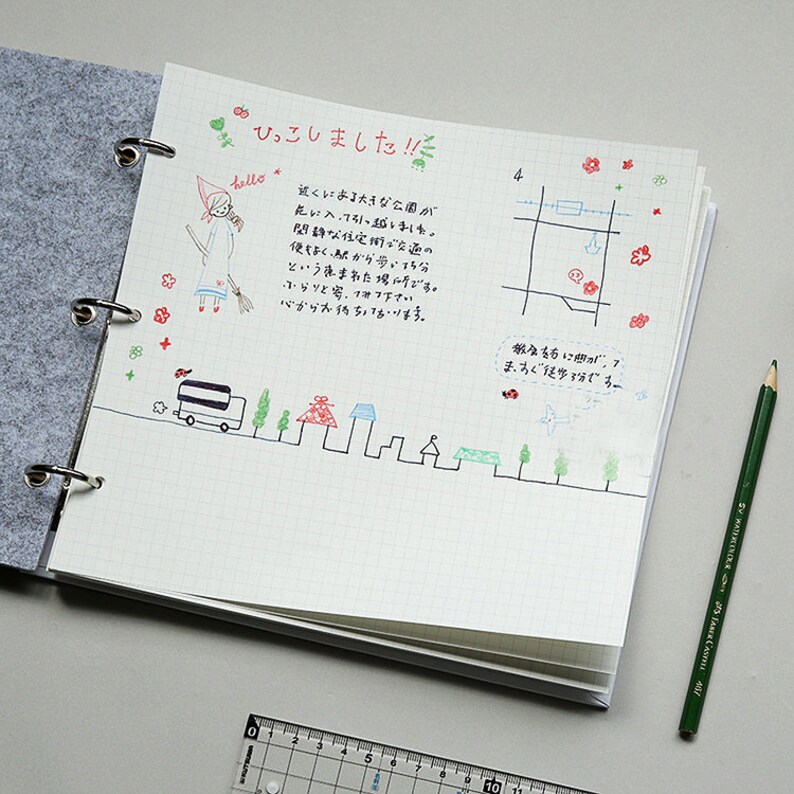 ひっこしました!!
hello
近くにある大きな公園が
気に入って引っ越しました。
閑静な住宅街で交通の
便もよく、駅から歩いて5分
という恵まれた場所です。
ふらりと寄って下さい
心からお待ちしております。
4
に曲がって
ます。すぐ徒歩3分です。
WATERCOLOUR
FABER CASTELL
0 1 2 3 4 5 6 7 8 9 10 11